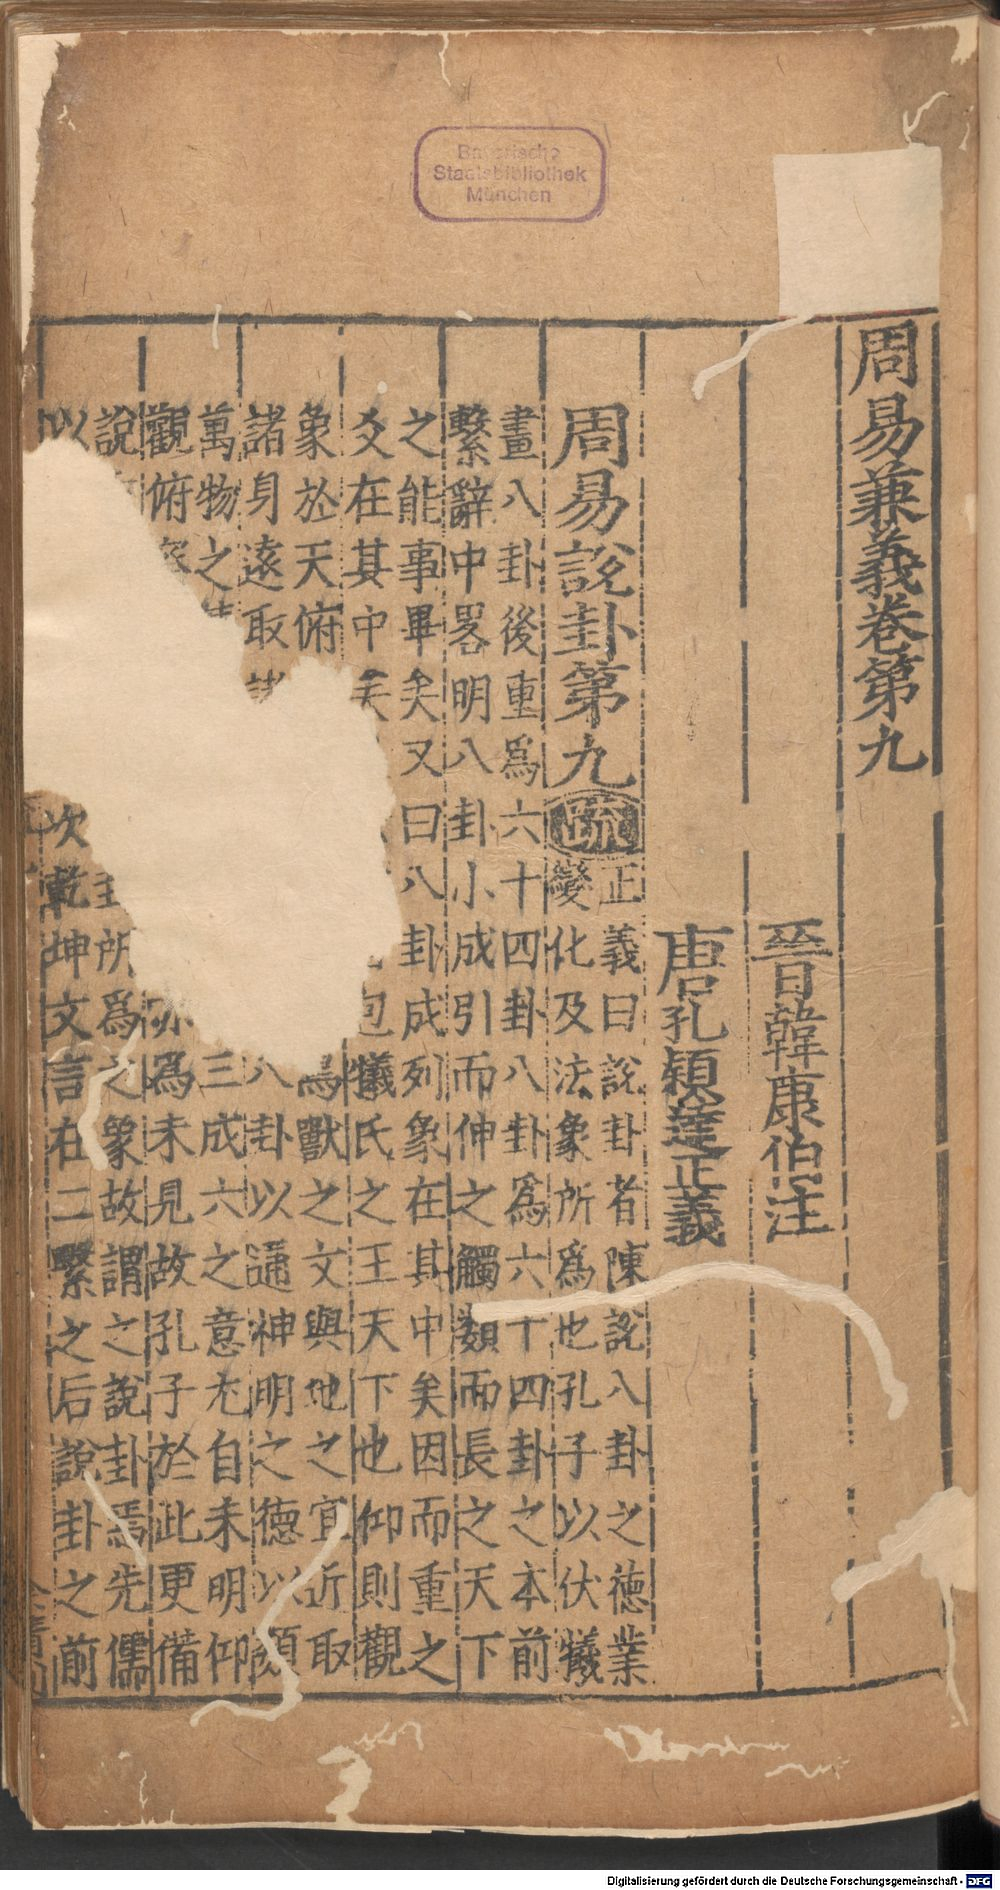 Bayerische
Staatsbibliothek
München
周易兼義卷第九
晉韓康伯注
唐孔穎達正義
周易說卦第九
疏
正義曰說卦者陳說八卦之德業
變化及法象所爲也孔子以伏犧
畫八卦後重爲六十四卦八卦爲六十四卦之本前
繫辭中畧明八卦小成引而伸之觸類而長之天下
之能事畢矣又曰八卦成列象在其中矣因而重之
爻在其中矣 包犧氏之王天下也仰則觀
象於天俯 鳥獸之文與地之宜近取
諸身遠取諸 八卦以通神明之德以類
萬物之 三成六之意尤自未明仰
觀俯 亦爲未見故孔子於此更備
說 卦所爲之象故謂之說卦焉先儒
以 次乾坤文言在二繫之后說卦之前
Digitalisierung gefördert durch die Deutsche Forschungsgemeinschaft - DFG